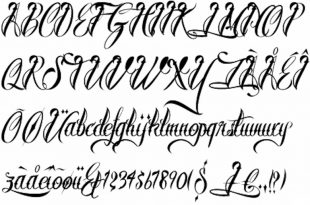 ABCDEFGHIJKLMNOP
QRSTUVWXYZÀÅÉÎ
ÕÜabcdefghijklmnopqrstuvwxy
zàåéîõøü&1234567890($£€.,!?)